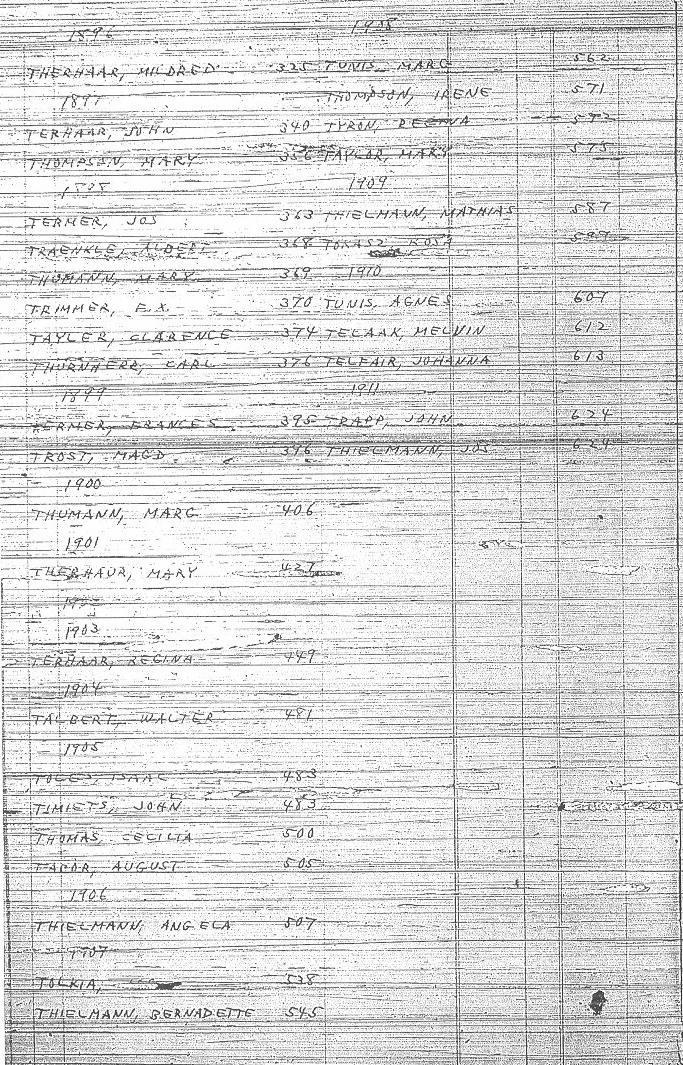 1896
THERHAAR, MILDRED 325
1897
TERHAAR, JOHN 340
THOMPSON, MARY 356
1898
TERMER, JOS 363
TRAENKLE, ALBERT 368
THUMANN, MARY 369
TRIMMER, F.X. 370
TAYLER, CLARENCE 374
THURNHERR, CARL 376
1899
TERMER, FRANCES 395
TROST, MAGD. 396
1900
THUMANN, MARG 406
1901
THERHAUR, MARY 427
1903
TERHAAR, REGINA 449
1904
TALBERT, WALTER 481
1905
TOLES, ISAAC 483
TIMIETS, JOHN 483
THOMAS, CECILIA 500
AUGUST 505
1906
THIELMANN, ANGELA 507
1907
TOLKIA, 538
THIELMANN, BERNADETTE 545
1908
TUNIS, MARG 562
THOMPSON, IRENE 571
TYRON, REGINA 572
TAYLOR, MARY 575
1909
THIELMANN, MATHIAS 587
TOKASZ ROSA 599
1910
TUNIS, AGNES 607
TELAAK, MELVIN 612
TELFAIR, JOHANNA 613
1911
TRAPP, JOHN 624
THIELMANN, JOS 629